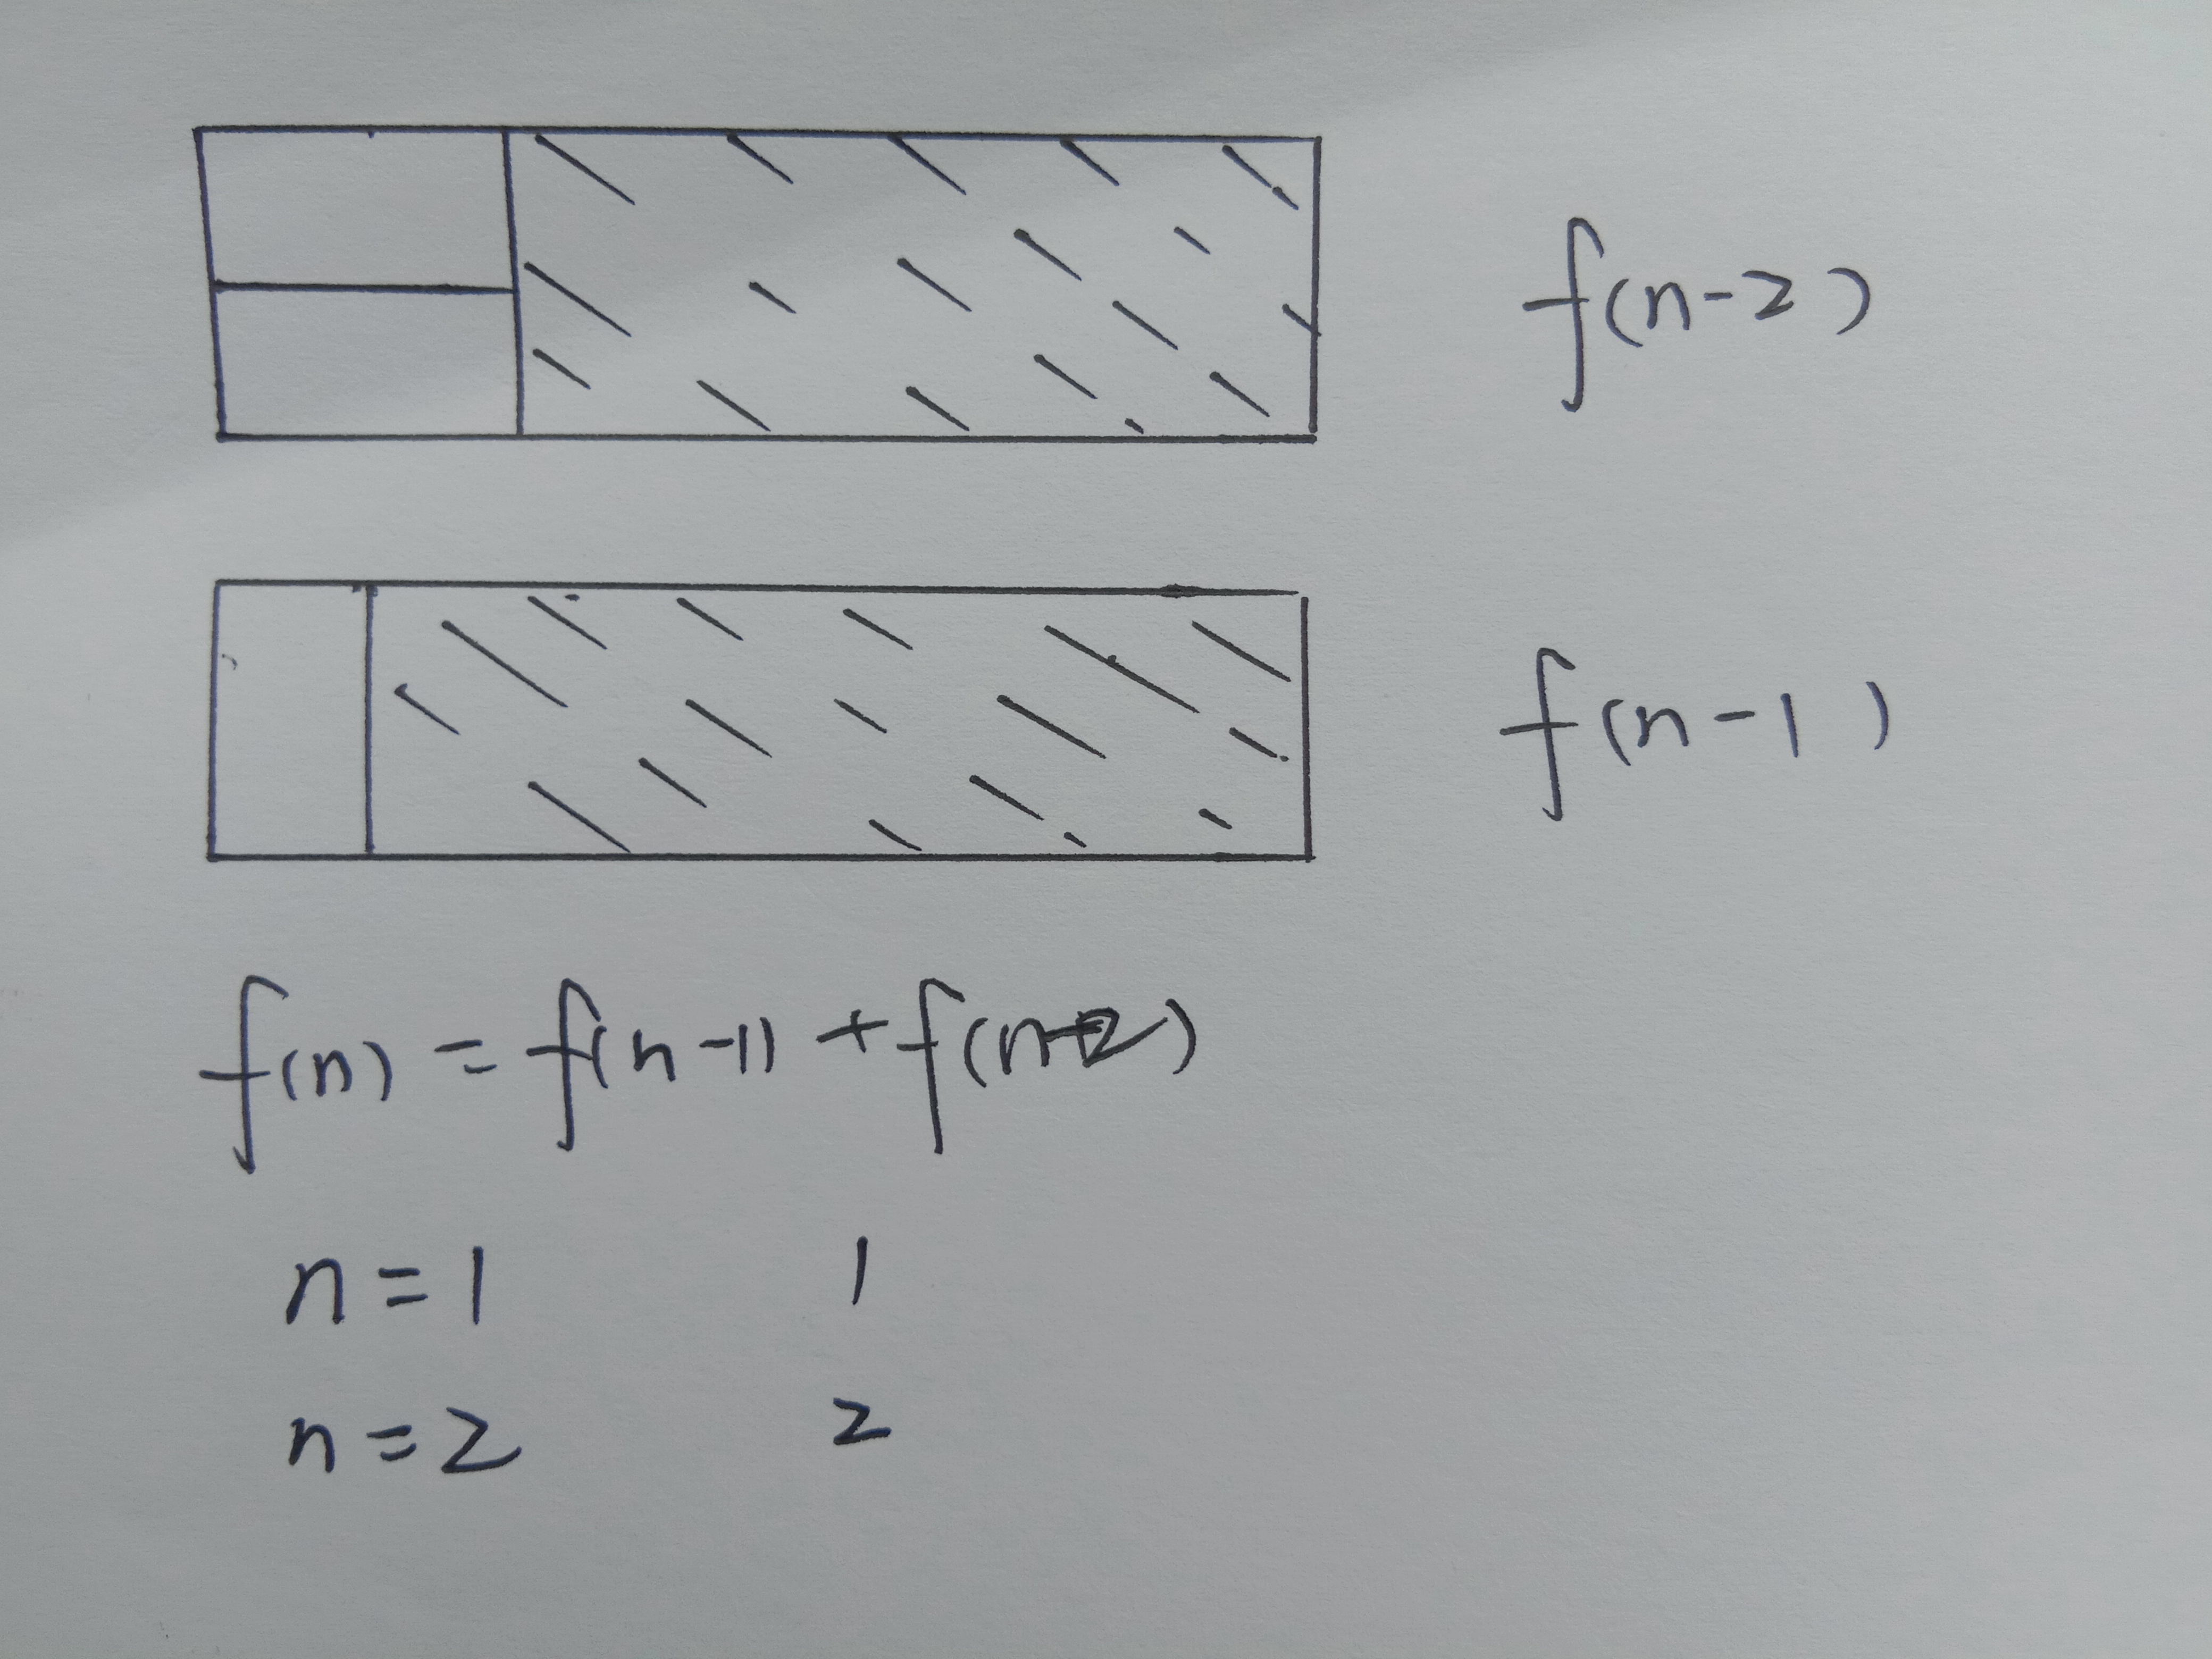 f(n-2)
f(n-1)
f(n) = f(n-1) + f(n-2)
n=1 1
n=2 2